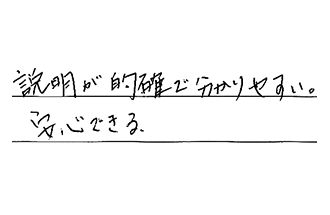 説明が的確で分かりやすい。
安心できる.